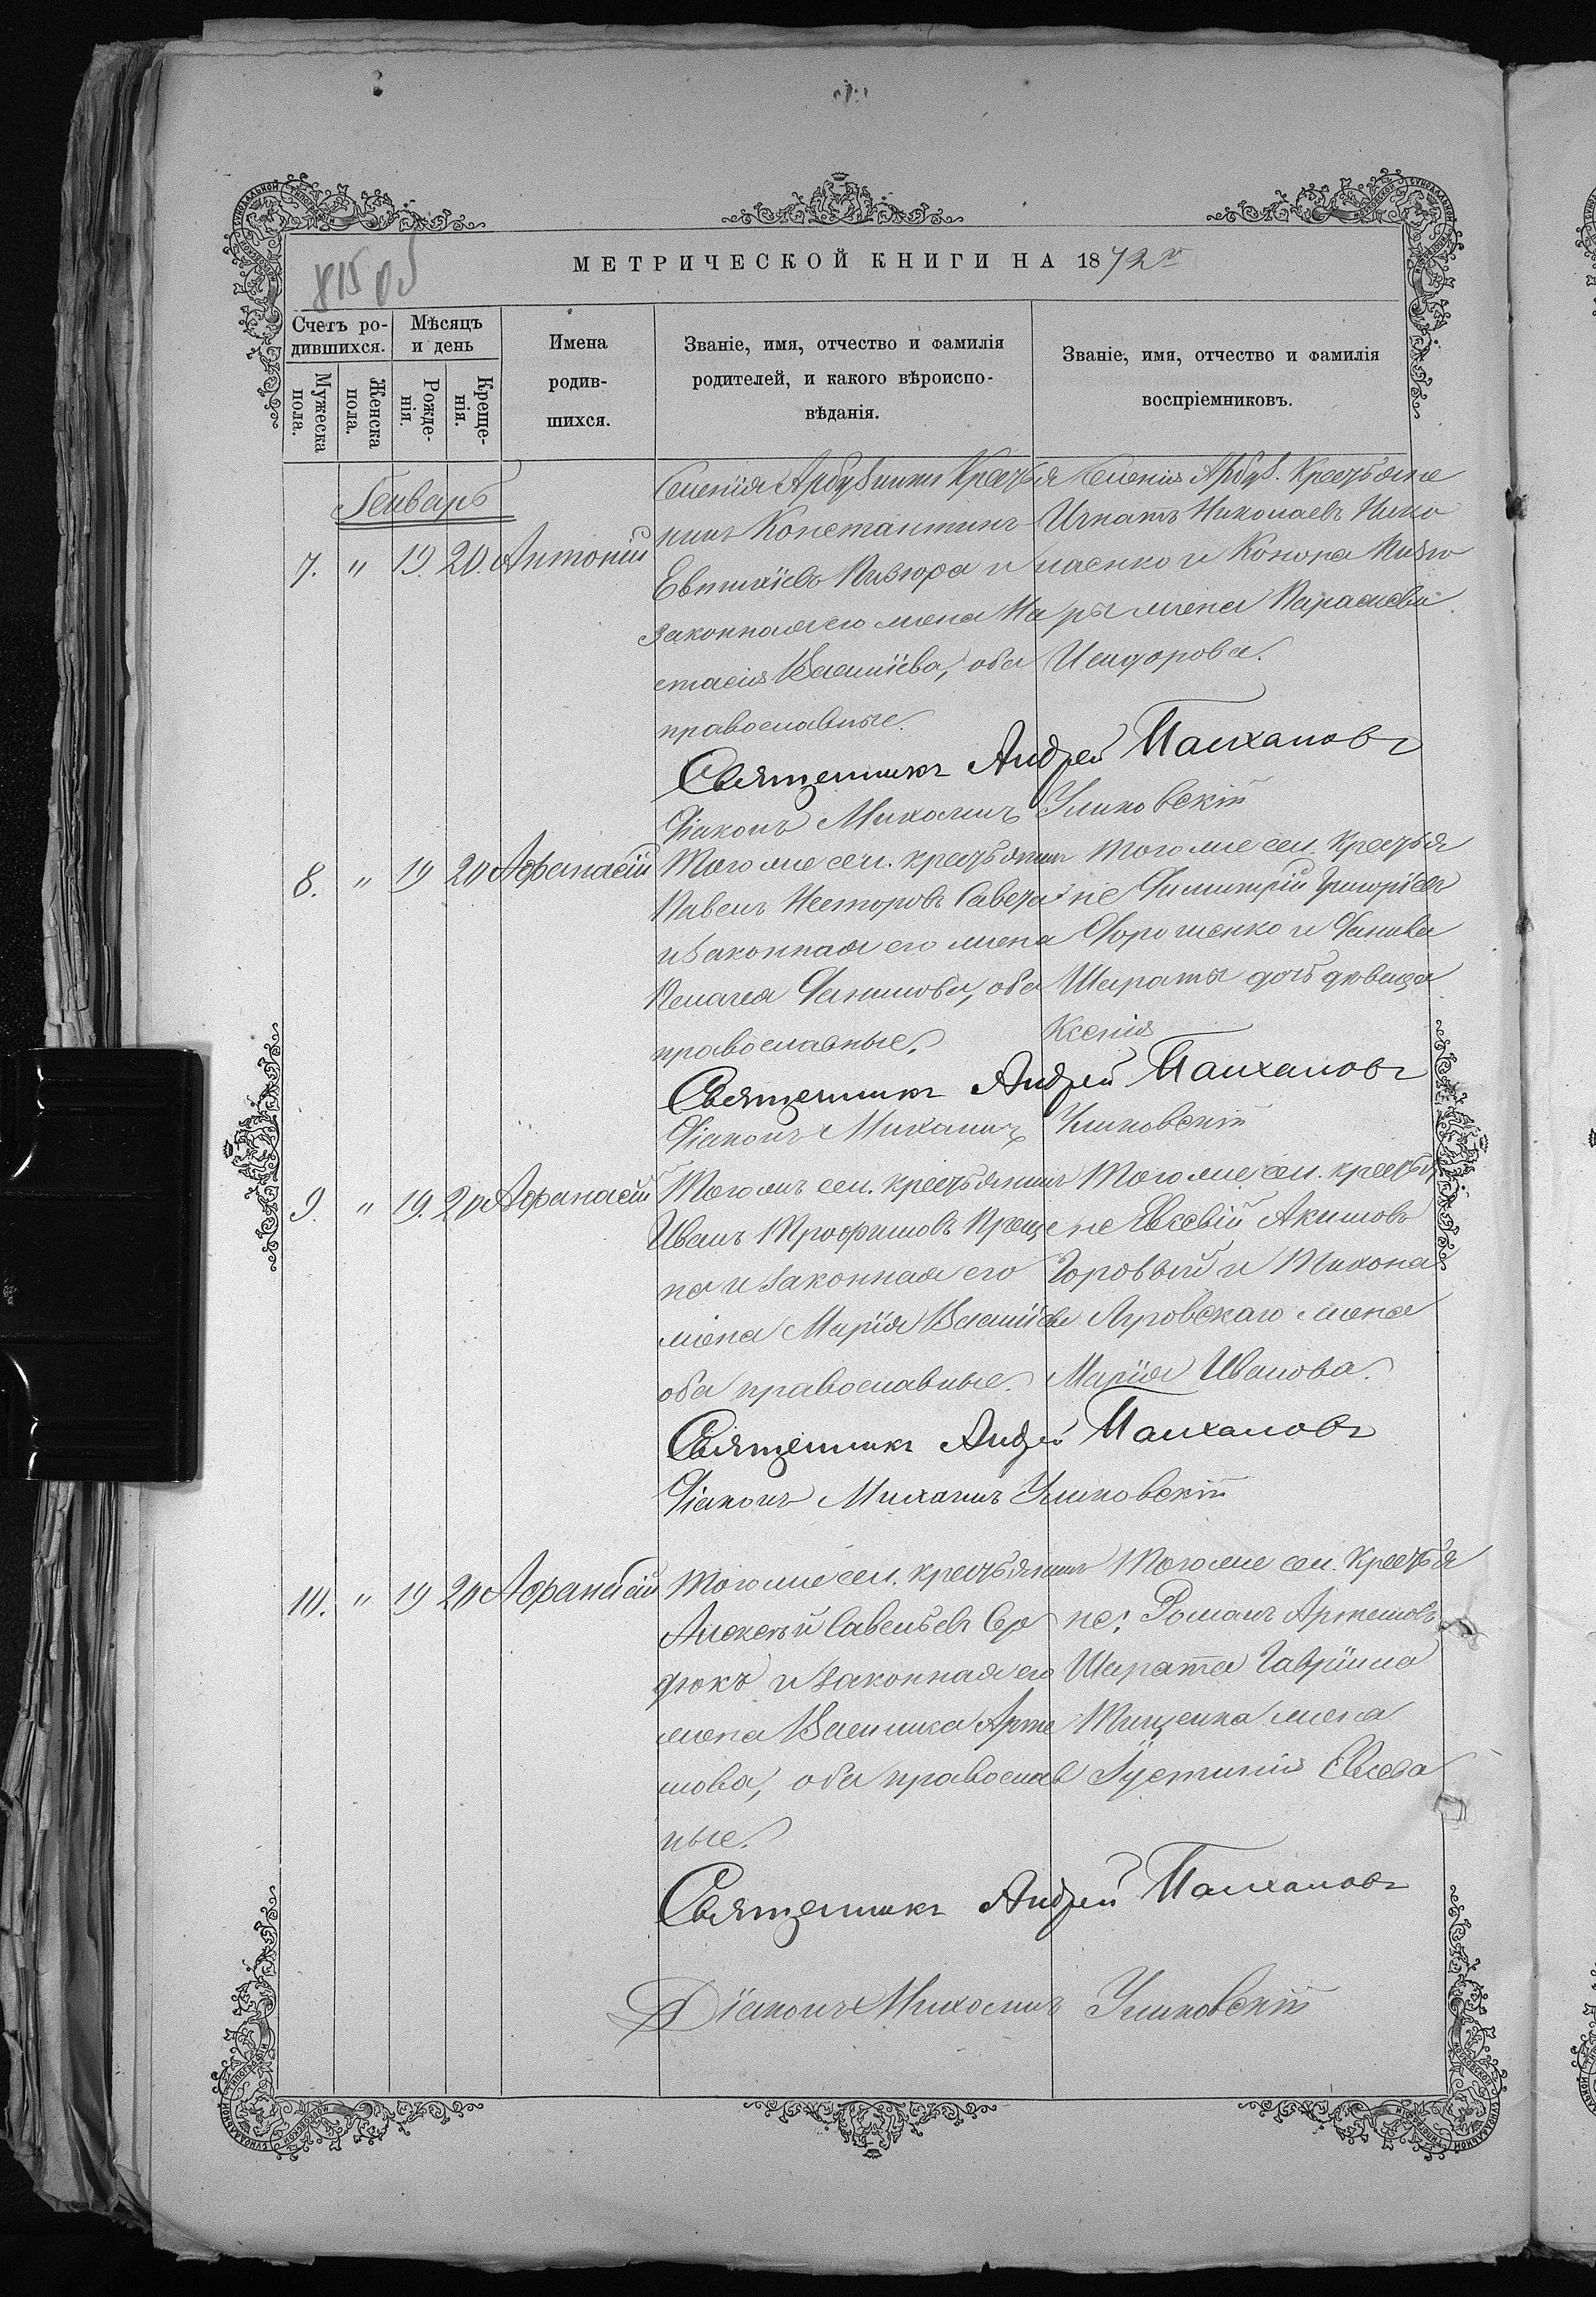 815 об
МЕТРИЧЕСКОЙ КНИГИ НА 1872 г.
Счетъ родившихся.
Мѣсяцъ и день
Мужеска пола.
Женска пола.
Рожденія.
Крещенія.
Имена
родив-
шихся.
Званіе, имя, отчество и фамилія
родителей, и какого вѣроиспо-
вѣданія.
Званіе, имя, отчество и фамилія
воспріемниковъ.
Генварь
7. " 19. 20. Антоній
Селенія Арбузинки Кресть
нинъ Константинъ
Евтихіевъ Пивюра и
законная его жена На
стасія Василіева, оба
православные.
Селенія Арбуз. Крестьяне
Игнатъ Николаевъ Нико
лаенко и Конона Пивю
ры жена Параскева
Исидорова.
Священникъ Андрей Палхановъ
Діаконъ Михаилъ Улиновскій
8. " 19 20 Афанасій
Того же сел. крестьянинъ
Павелъ Несторовъ Савега
и законная его жена
Пелагея Данилова, оба
православные.
Того же сел. Крестья
не Димитрій Григоріевъ
Дорошенко и Данила
Шараты дочь девица
Ксенія
Священникъ Андрей Палхановъ
Діаконъ Михаилъ Улиновскій
9. " 19. 20 Афанасій
Того жъ сел. крестьянинъ
Иванъ Трофимовъ Преще
па и законная его
жена Марія Василіева
оба православные.
Того же сел. крестья
не Евсевій Акимовъ
Горовый и Тихона
Ляровскаго жена
Марія Иванова.
Священникъ Андрей Палхановъ
Діаконъ Михаилъ Улиновскій
10. " 19 20 Афанасій
Того же сел. крестьянинъ
Алексѣй Савельевъ Сер
дюкъ и законная его
жена Василиса Арте
мова, оба православ
ные.
Того же сел. Крестья
не: Романъ Артемовъ
Шарата Гавріила
Тищенка жена
Іустинія Евсева
Священникъ Андрей Палхановъ
Діаконъ Михаилъ Улиновскій